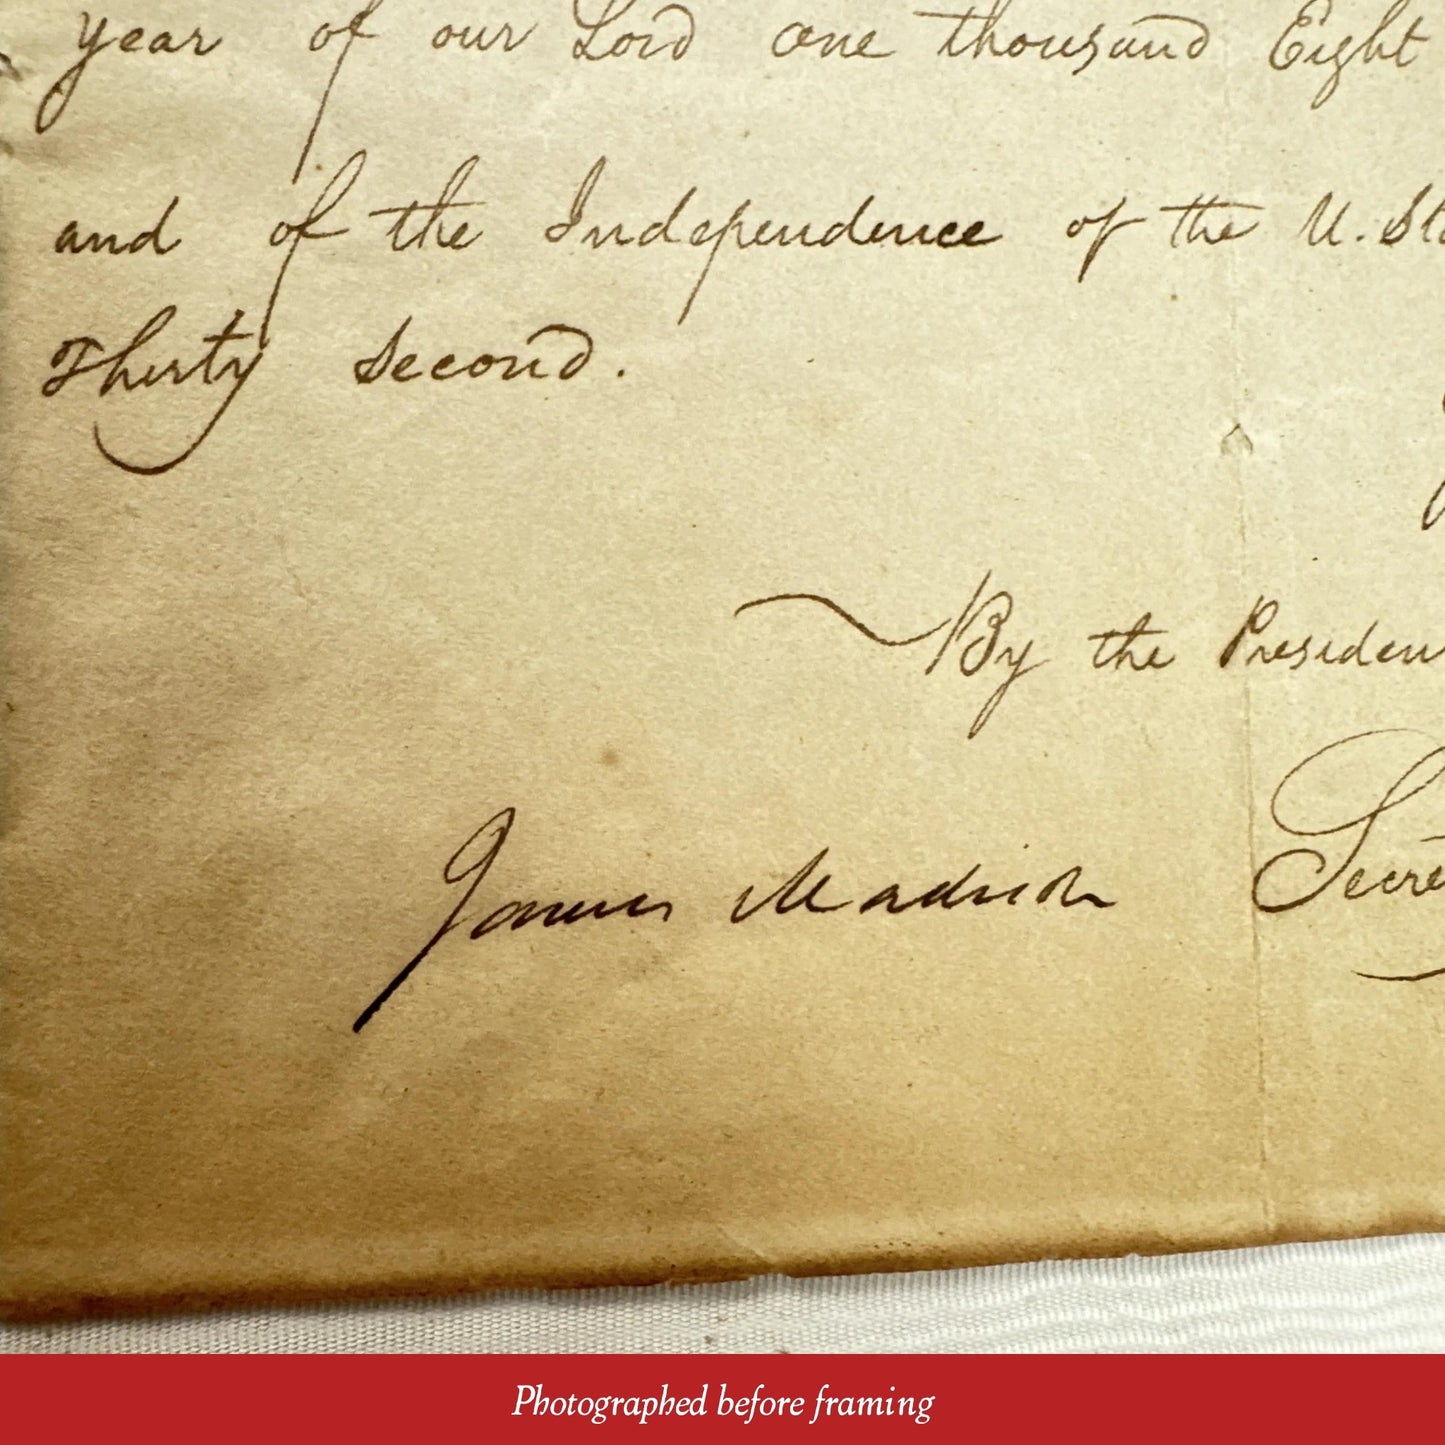 year of our Lord one thousand Eight
and of the Independence of the U. Sta
Thirty Second.
By the Presiden
James Madison Secre
Photographed before framing